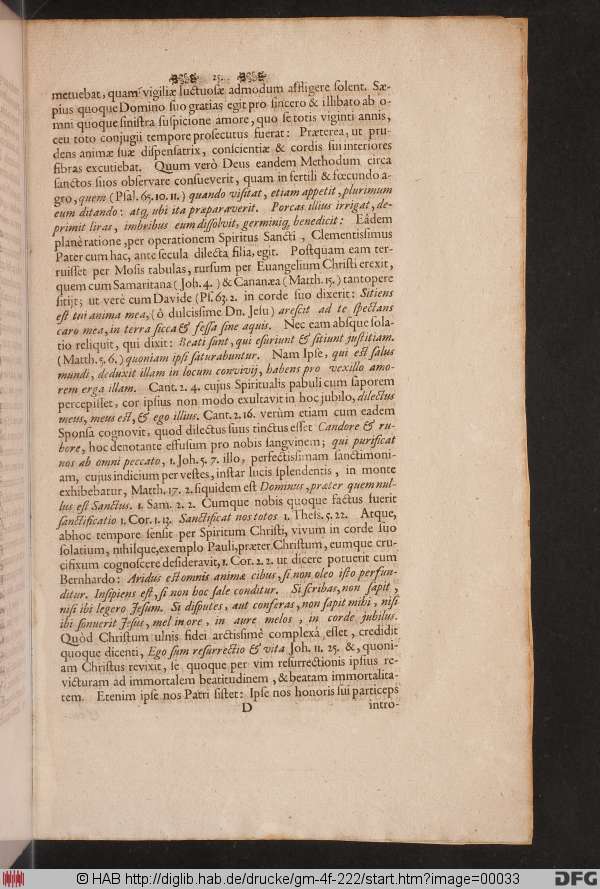 25.
metuebat, quam vigiliæ luctuosæ admodum affligere solent. Sæ-
pius quoque Domino suo gratias egit pro sincero & illibato ab o-
mni quoque sinistra suspicione amore, quo se totis viginti annis,
ceu toto conjugii tempore prosecutus fuerat: Præterea, ut pru-
dens animæ suæ dispensatrix, conscientiæ & cordis sui interiores
fibras excutiebat. Quum verò Deus eandem Methodum circa
sanctos suos observare consueverit, quam in fertili & fœcundo a-
gro, quem (Psal. 65. 10. 11.) quando visitat, etiam appetit, plurimum
eum ditando: atq; ubi ita præparaverit. Porcas illius irrigat, de-
primit liras, imbribus eum dissolvit, germiniq; benedicit: Eâdem
planè ratione, per operationem Spiritus Sancti, Clementissimus
Pater cum hac, ante secula dilecta filia, egit. Postquam eam ter-
ruisset per Mosis tabulas, rursum per Euangelium Christi erexit,
quem cum Samaritana (Joh. 4.) & Cananæa (Matth. 15.) tantopere
sitijt; ut verè cum Davide (Ps. 63. 2. in corde suo dixerit: Sitiens
est tui anima mea, (ô dulcissime Dn. Jesu) arescit ad te spectans
caro mea, in terra sicca & fessa sine aquis. Nec eam absque sola-
tio reliquit, qui dixit: Beati sunt, qui esuriunt & sitiunt justitiam.
(Matth. 5. 6.) quoniam ipsi saturabuntur. Nam Ipse, qui est salus
mundi, deduxit illam in locum convivij, habens pro vexillo amo-
rem erga illam. Cant. 2. 4. cujus Spiritualis pabuli cum saporem
percepisset, cor ipsius non modo exultavit in hoc jubilo, dilectus
meus, meus est, & ego illius. Cant. 2. 16. verùm etiam cum eadem
Sponsa cognovit, quod dilectus suus tinctus esset Candore & ru-
bore, hoc denotante effusum pro nobis sangvinem; qui purificat
nos ab omni peccato, 1. Joh. 5. 7. illo, perfectissimam sanctimoni-
am, cujus indicium per vestes, instar lucis splendentis, in monte
exhibebatur, Matth. 17. 2. siquidem est Dominus, præter quem nul-
lus est Sanctus. 1. Sam. 2. 2. Cumque nobis quoque factus fuerit
sanctificatio 1. Cor. 1. 13. Sanctificat nos totos 1. Thess. 5. 22. Atque,
abhoc tempore sensit per Spiritum Christi, vivum in corde suo
solatium, nihilque, exemplo Pauli, præter Christum, eumque cru-
cifixum cognoscere desideravit, 1. Cor. 2. 2. ut dicere potuerit cum
Bernhardo: Aridus est omnis animæ cibus, si non oleo isto perfun-
ditur. Insipiens est, si non hoc sale conditur. Si scribas, non sapit,
nisi ibi legero Jesum. Si disputes, aut conferas, non sapit mihi, nisi
ibi sonuerit Jesus, mel in ore, in aure melos, in corde jubilus.
Quòd Christum ulnis fidei arctissimè complexâ esset, credidit
quoque dicenti, Ego sum resurrectio & vita Joh. 11. 25. &, quoni-
am Christus revixit, se quoque per vim resurrectionis ipsius re-
victuram ad immortalem beatitudinem, & beatam immortalita-
tem. Etenim ipse nos Patri sistet: Ipse nos honoris sui particeps
D intro-
© HAB http://diglib.hab.de/drucke/gm-4f-222/start.htm?image=00033
DFG